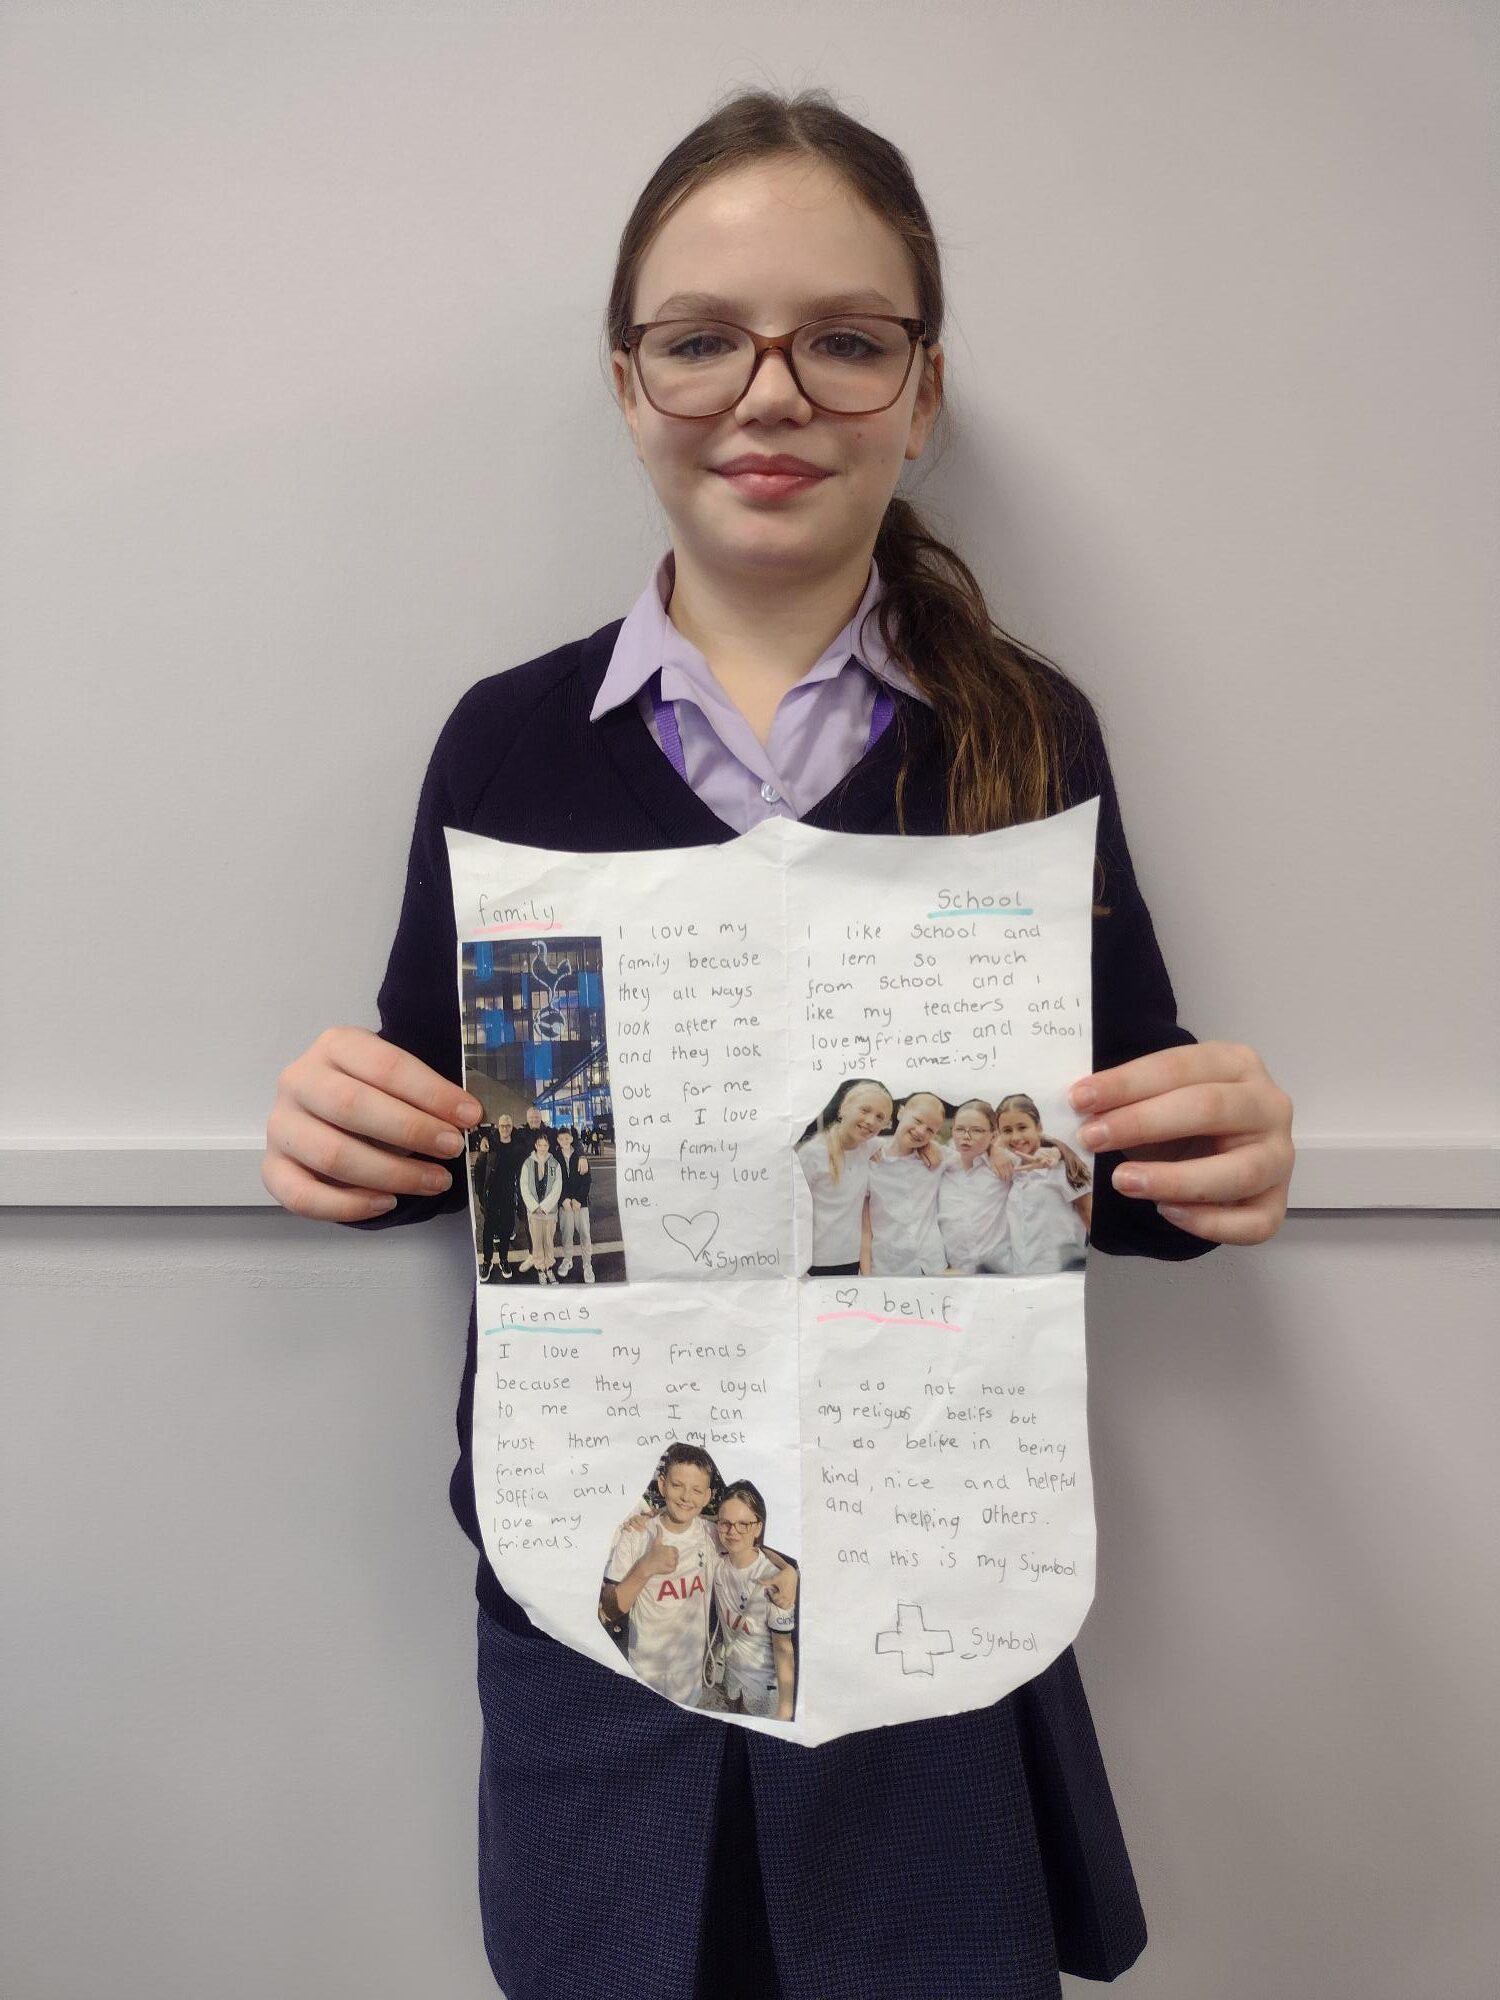 family
I love my
family because
they all ways
look after me
and they look
out for me
and I love
my family
and they love
me.
Symbol
School
I like School and
i lern so much
from School and I
like my teachers and I
love my friends and School
is just amazing!
friends
I love my friends
because they are loyal
to me and I can
trust them and my best
friend is
Soffia and I
love my
friends.
AIA
belif
I do not have
any religus belifs but
I do belive in being
kind, nice and helpful
and helping others.
and this is my Symbol
Symbol